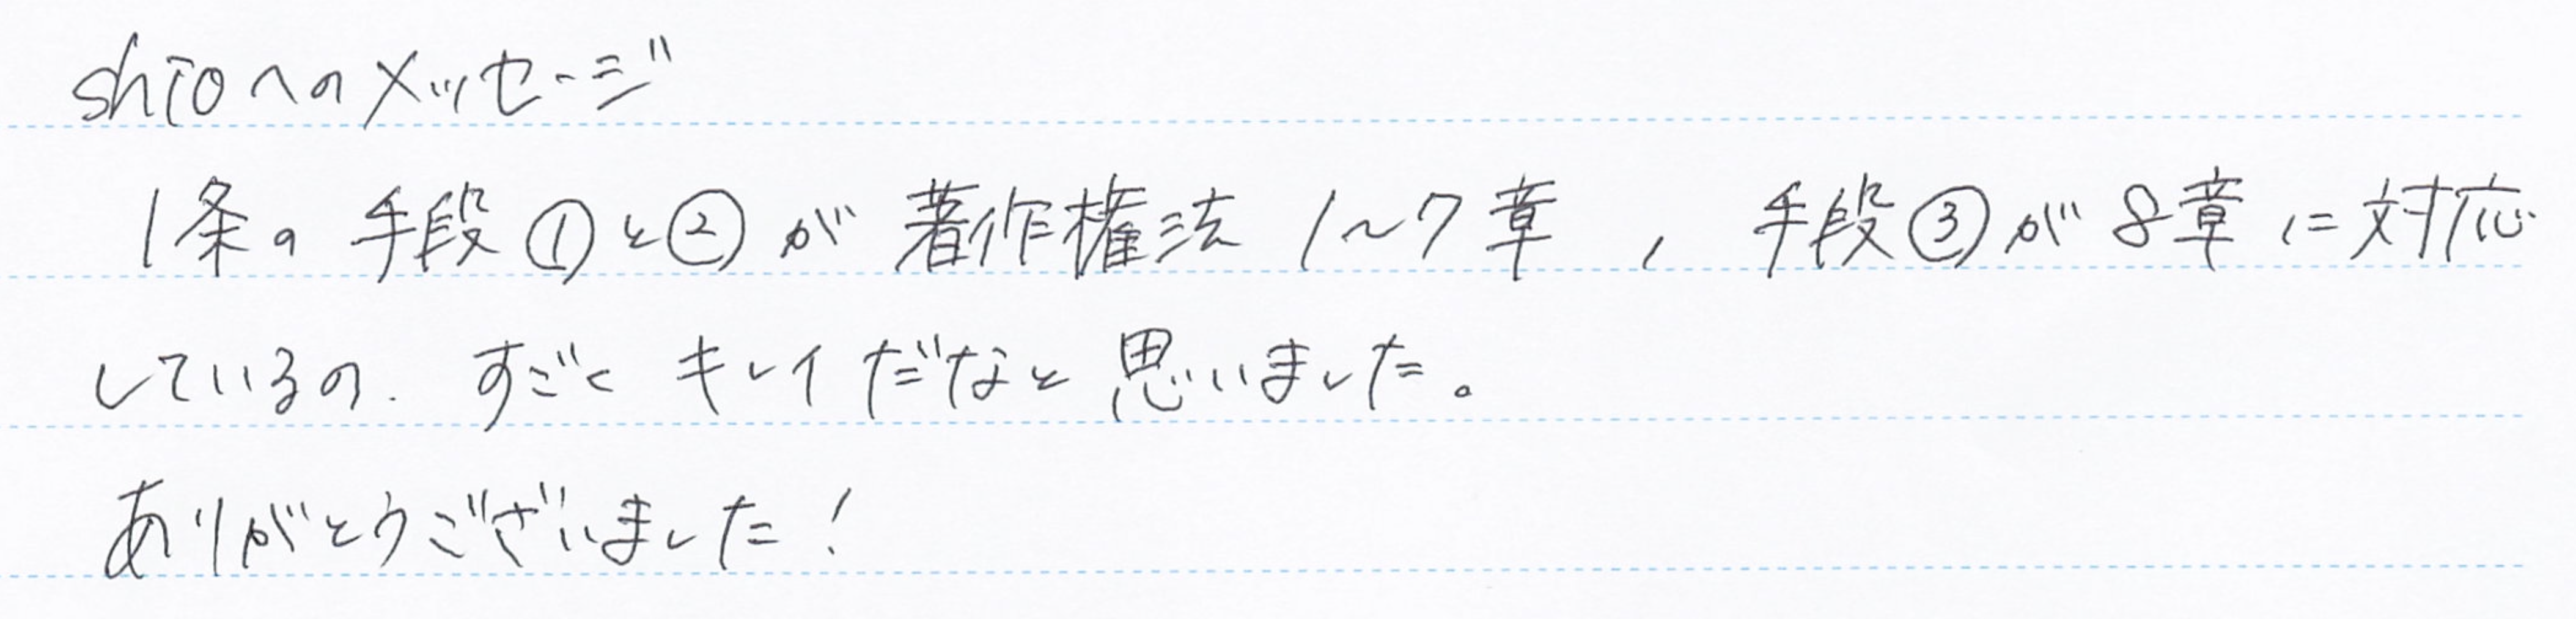 shioへのメッセージ
1条の手段①と②が著作権法1〜7章，手段③が8章に対応
しているの．すごくキレイだなと思いました。
ありがとうございました！